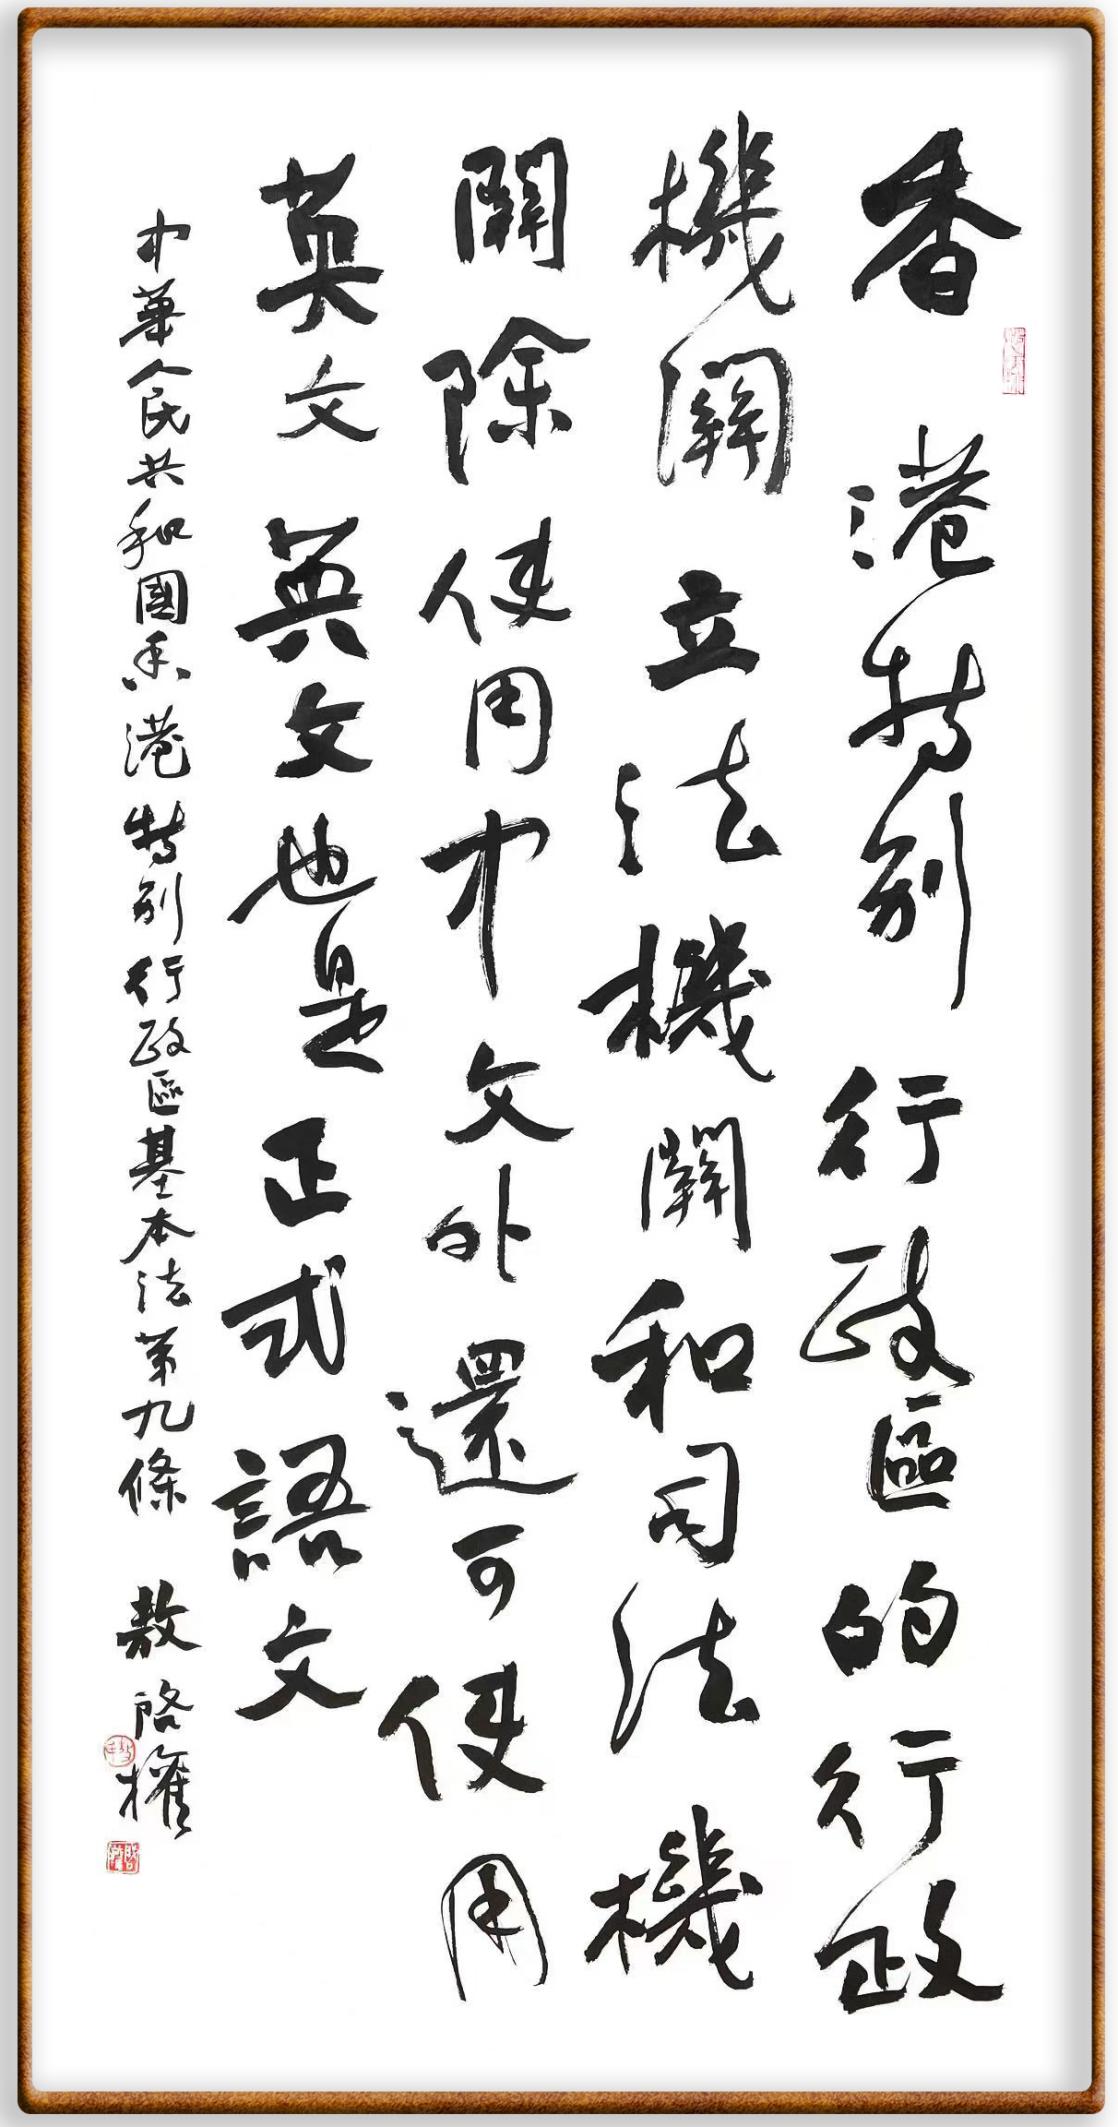 香港特別行政區的行政
機關立法機關和司法機
關除使用中文外還可使用
英文英文也是正式語文
中華人民共和國香港特別行政區基本法第九條 敖啓權